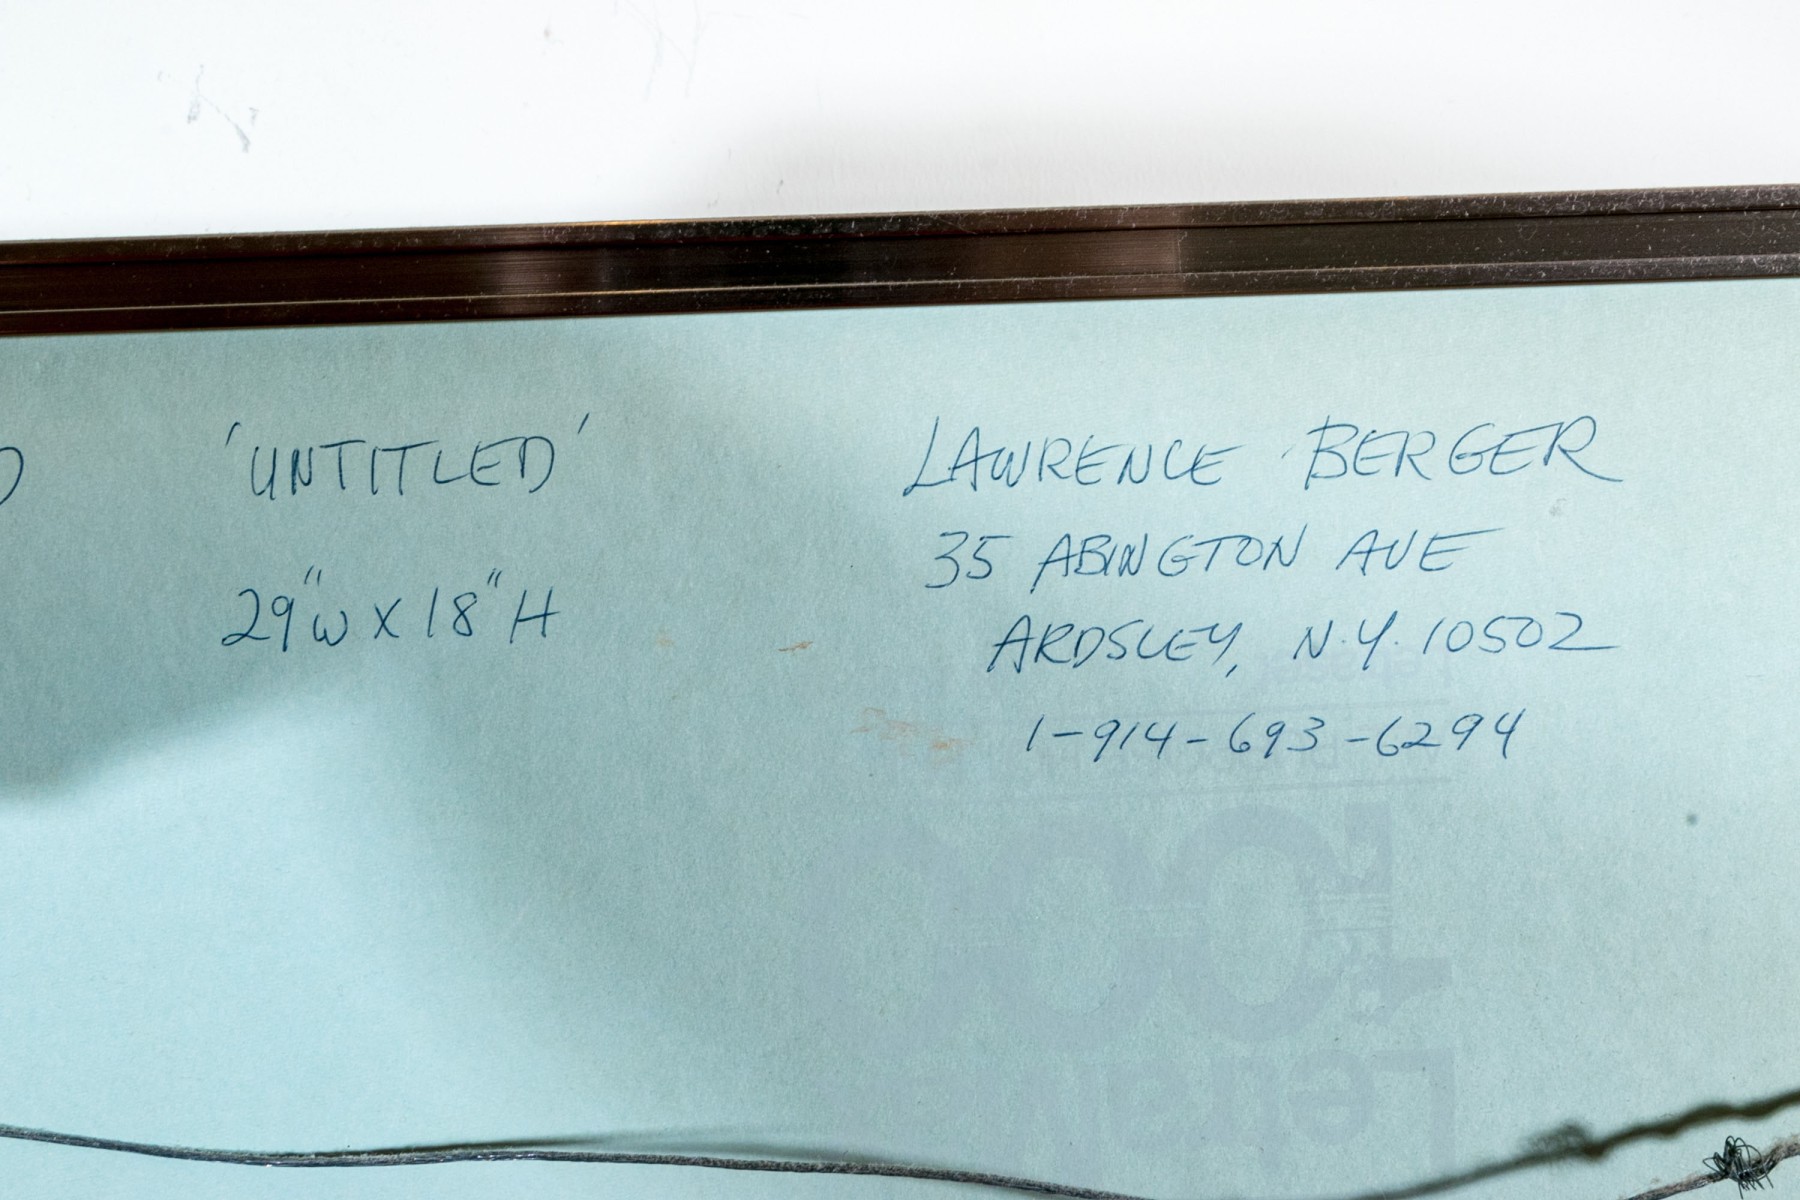 'UNTITLED'
29"W X 18"H
LAWRENCE BERGER
35 ABINGTON AVE
ARDSLEY, N.Y. 10502
1-914-693-6294